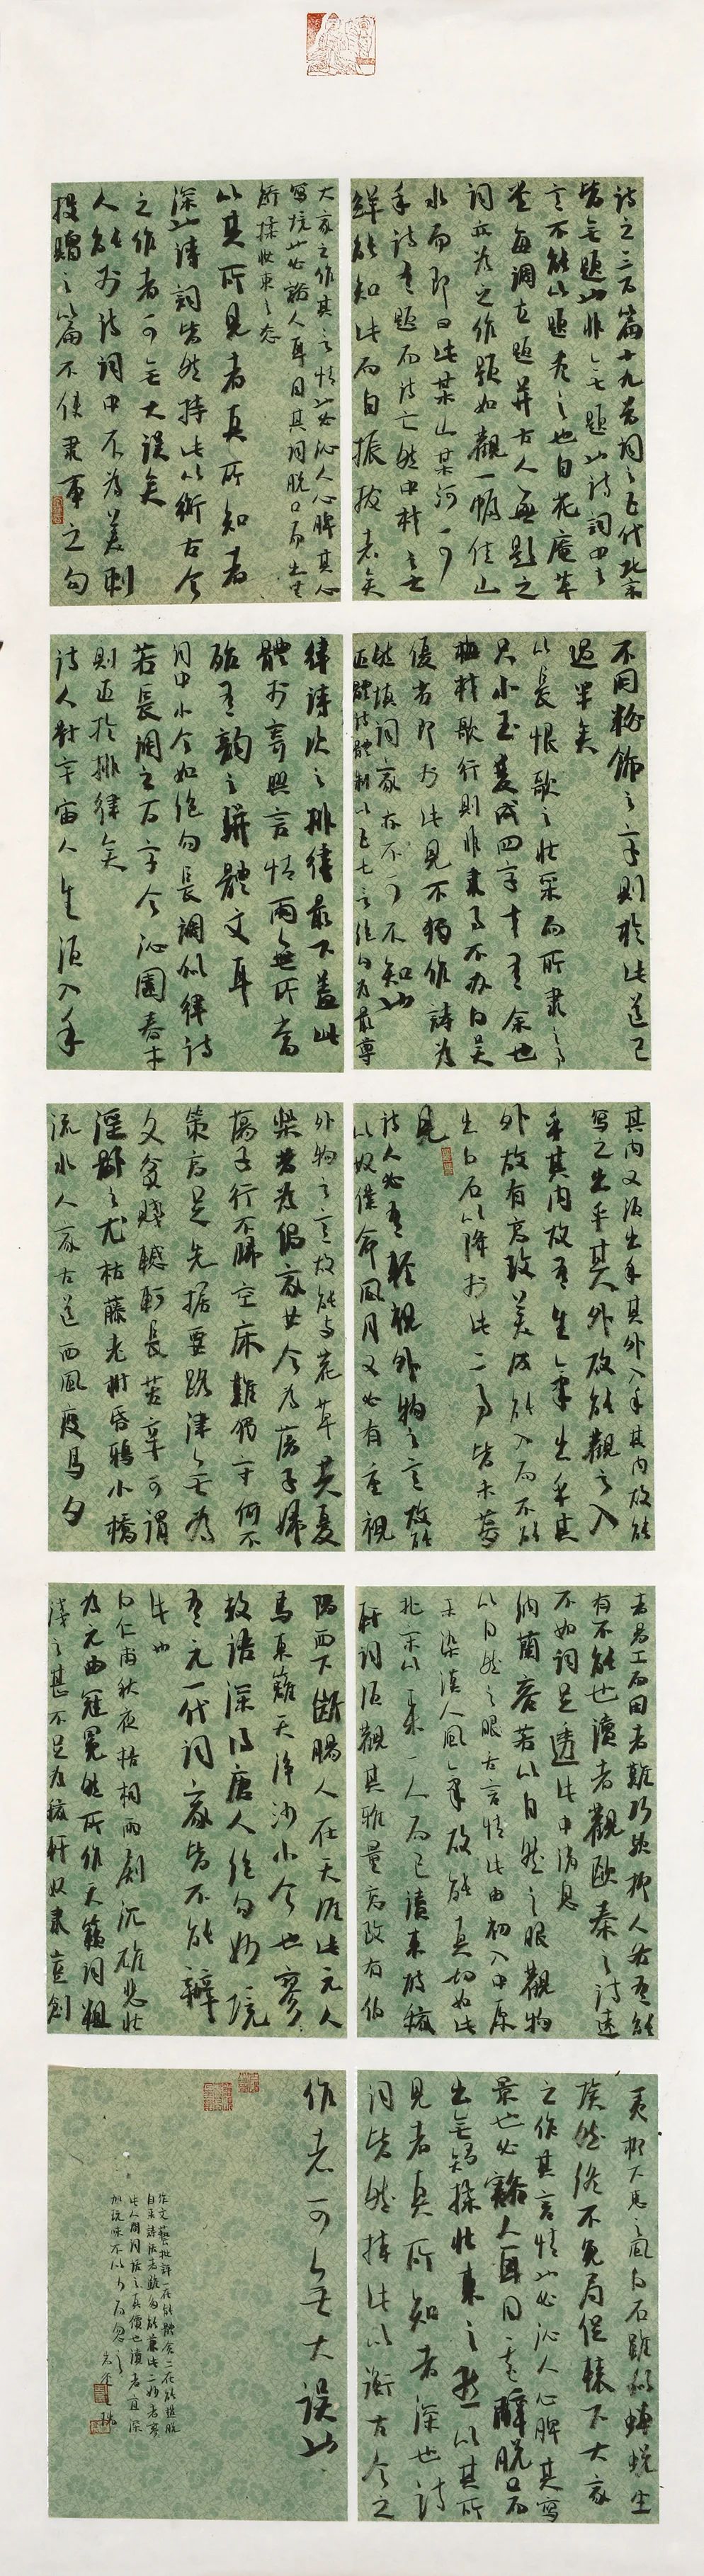 詩之三百篇十九首詞之五代北宋
皆無題也非無題也詩詞中之
意不能以題盡之也自花庵草
堂每調立題并古人無題之
詞亦為之作題如觀一幅佳山
水而即曰此某山某河可
乎詩有題而詩亡然中材之士
鮮能知此而自振拔者矣
大家之作其言情也必沁人心脾其
寫境也必豁人耳目其詞脱口而出無
矯揉妝束之态
以其所見者真所知者
深也詩詞皆然持此以衡古今
之作者可無大誤矣
人能於詩詞中不為美刺
投贈之篇不使隶事之句
不用粉飾之字則於此道已
過半矣
以長恨歌之壯采而所隶之事
只小玉雙成四字才有余也
梅村歌行則非隶事不办白吴
優劣即於此見不獨作詩為
然填詞家亦不可不知也
近體詩體制以五七言絶句為最尊
律詩次之排律最下蓋此
體於寄興言情兩無所當
殆有韵之駢體文耳
詞中小令如絶句長調似律詩
若長調之百字令沁園春等
則近於排律矣
詩人對宇宙人生須入乎
其内又須出乎其外入乎其内故能
寫之出乎其外故能觀之入
乎其内故有生氣出乎其
外故有高致美成能入而不能
出白石以降於此二事皆未夢
見
詩人必有輕視外物之意故能
以奴僕命風月又必有重視
外物之意故能与花草共憂
樂昔為倡家女今為蕩子婦
蕩子行不歸空床難獨守何不
策高足先據要路津無為
久貧賤轗軻長苦辛可謂
淫鄙之尤枯藤老樹昏鴉小橋
流水人家古道西風瘦馬夕
者易工而固者難巧歟抑人各有能
有不能也讀者觀歐秦之詩遠
不如詞足透此中消息
納蘭容若以自然之眼觀物
以自然之舌言情此由初入中原
未染漢人風氣故能真切如此
北宋以來一人而已讀東坡稼
軒詞須觀其雅量高致有伯
陽西下斷腸人在天涯此元人
馬東籬天净沙小令也寥寥
數語深得唐人絶句妙境
有元一代詞家皆不能辦
此也
白仁甫秋夜梧桐雨劇沉雄悲壯
為元曲冠冕然所作天籟詞粗
淺之甚不足為稼軒奴隶豈創
夷柳下惠之風白石雖似蟬蛻塵
埃然終不免局促轅下大家
之作其言情也必沁人心脾其寫
景也必豁人耳目其辭脱口而
出無矯揉妝束之態以其所
見者真所知者深也詩
詞皆然持此以衡古今之
作者可無大誤也
作文藝批評一在能體會二在能超脱
此人間詞話之真價也讀者宜深
加玩味不以少而忽之